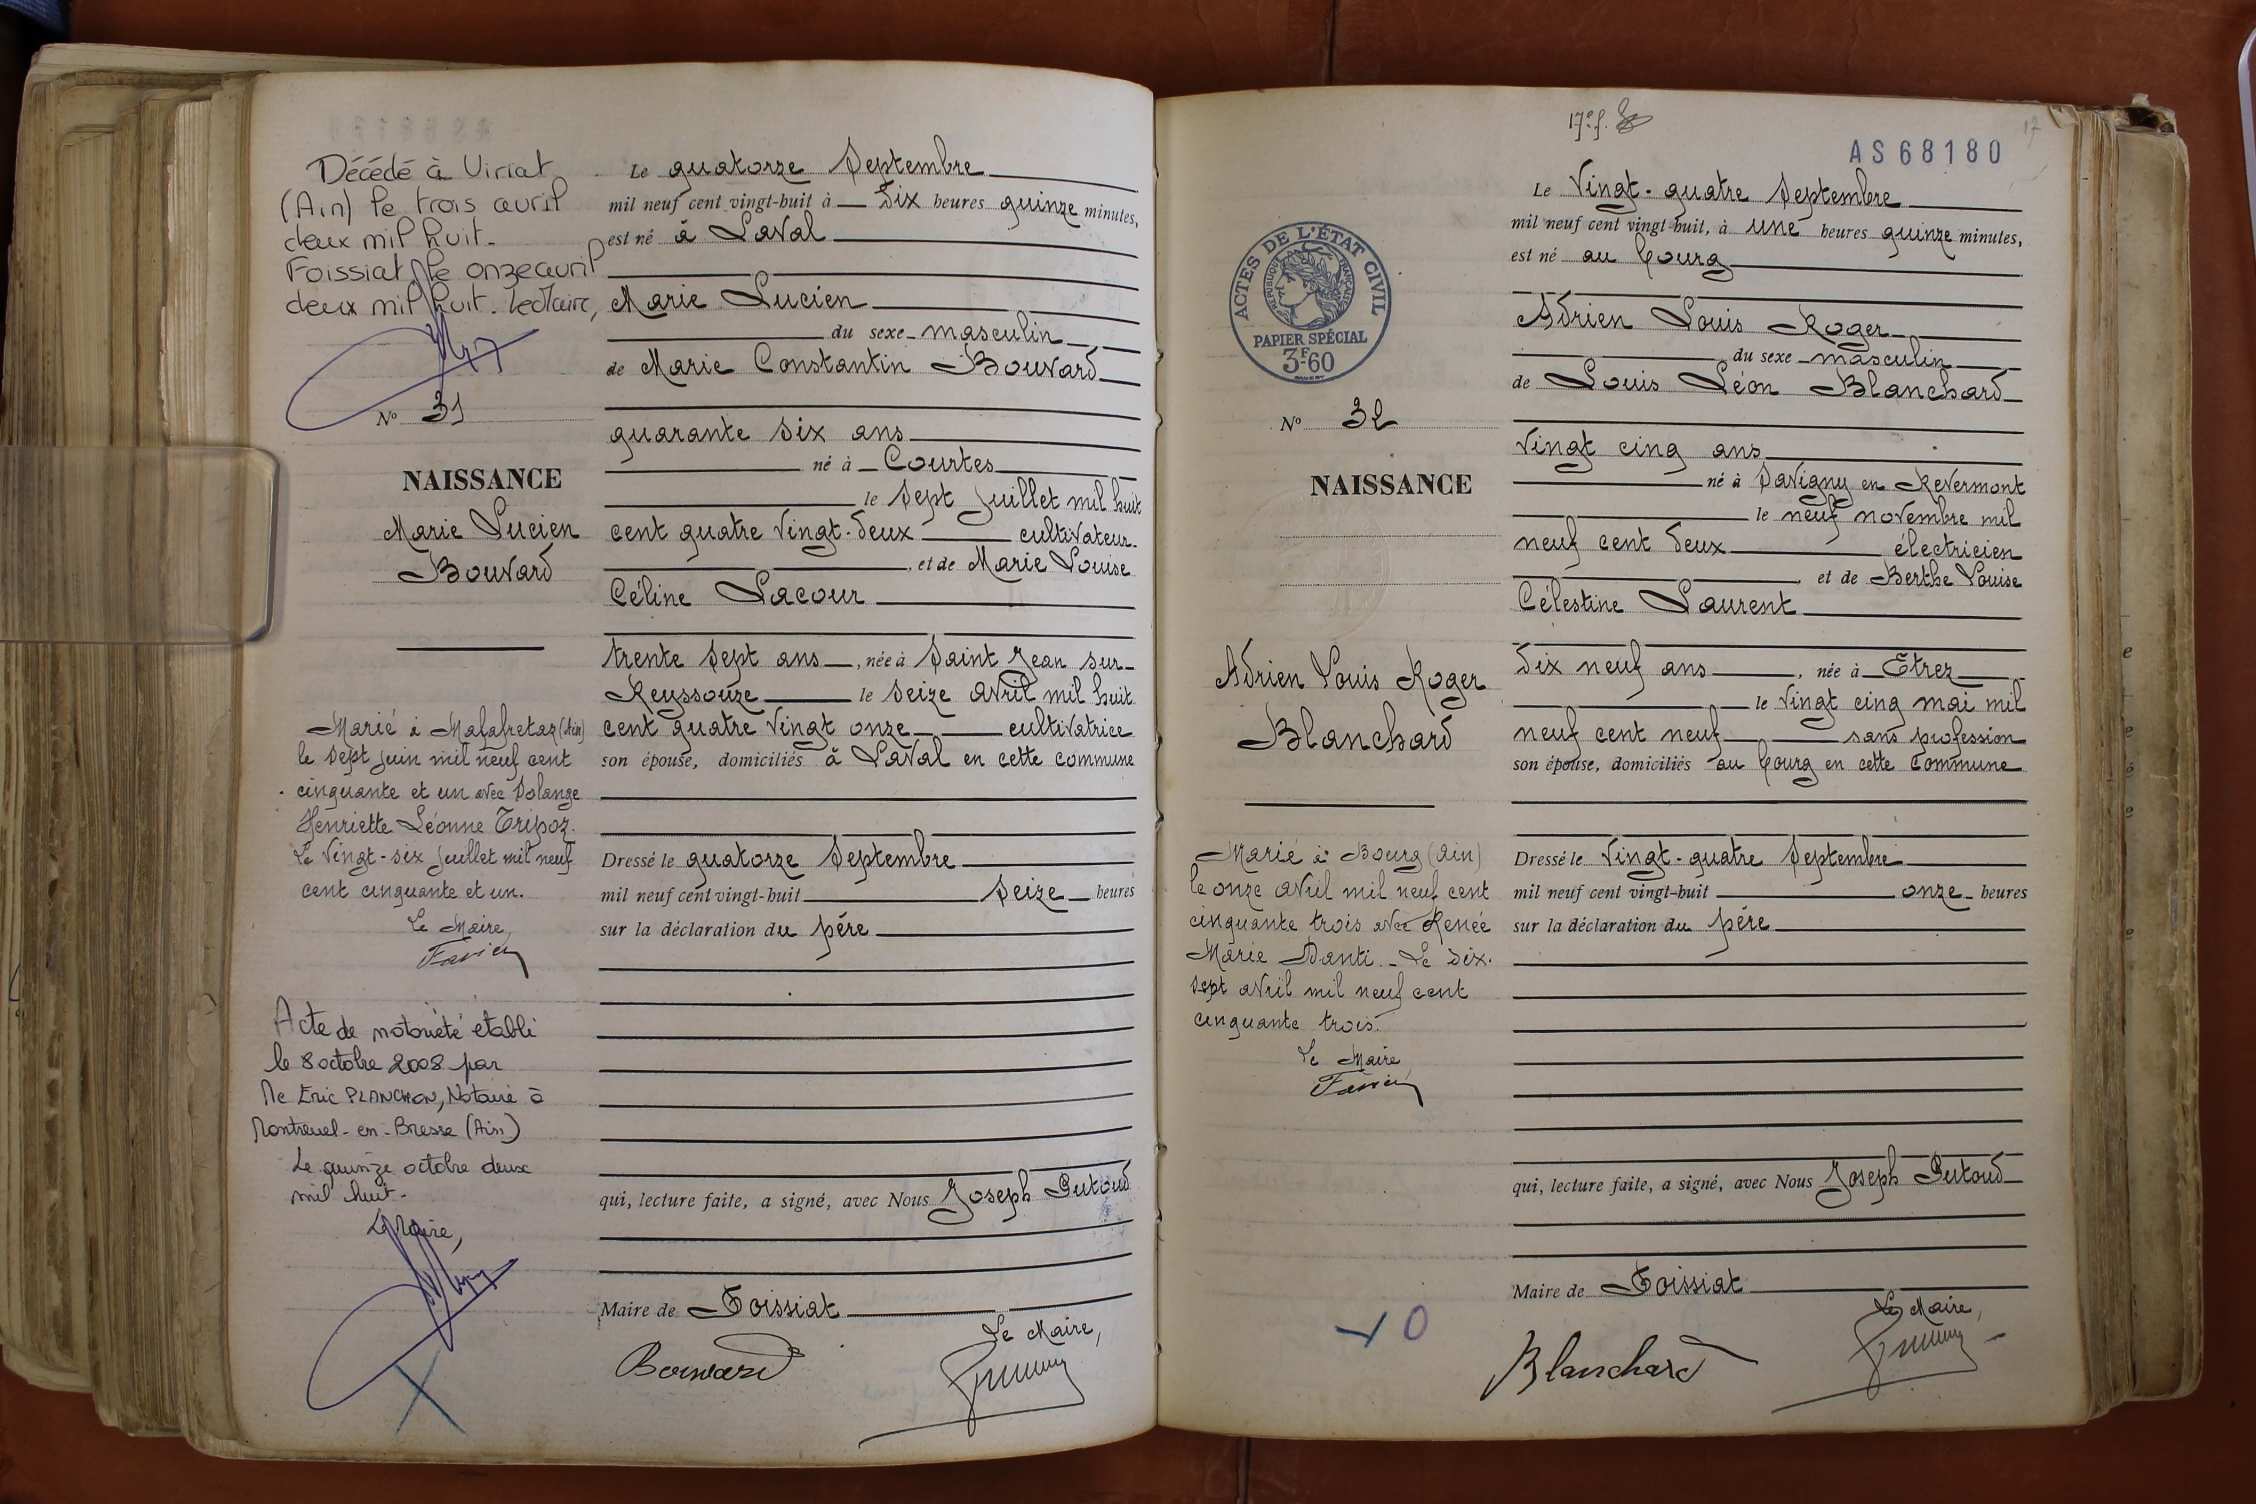 Décédé à Viriat
(Ain) le trois avril
deux mil huit.
Foissiat le onze avril
deux mil huit. Le Maire,
N° 31
NAISSANCE
Marie Lucien
Bouvard
Marié à Malafretaz (Ain)
le sept juin mil neuf cent
cinquante et un avec Solange
Henriette Léonne Tripoz.
Le vingt-six juillet mil neuf
cent cinquante et un.
Le Maire,
Acte de notoriété établi
le 8 octobre 2008 par
Me Eric PLANCHON, Notaire à
Montrevel-en-Bresse (Ain)
Le quinze octobre deux
mil huit.
Le Maire,
Le quatorze Septembre
mil neuf cent vingt-huit à dix heures quinze minutes,
est né à Laval
Marie Lucien
du sexe masculin
de Marie Constantin Bouvard
quarante six ans
né à Courtes
le sept juillet mil huit
cent quatre vingt-deux cultivateur
, et de Marie Louise
Céline Lacour
trente sept ans, née à Saint Jean sur
Reyssouze le seize avril mil huit
cent quatre vingt onze cultivatrice
son épouse, domiciliés à Laval en cette commune
Dressé le quatorze Septembre
mil neuf cent vingt-huit seize heures
sur la déclaration du père
qui, lecture faite, a signé, avec Nous Joseph Putoud
Maire de Foissiat
Le Maire,
Bouvard
17e f.
17
AS68180
ACTES DE L'ÉTAT CIVIL
RÉPUBLIQUE FRANÇAISE
PAPIER SPÉCIAL
3F60
N° 32
NAISSANCE
Adrien Louis Roger
Blanchard
Marié à Bourg (Ain)
le onze avril mil neuf cent
cinquante trois avec Renée
Marie Danti. Le dix-
sept avril mil neuf cent
cinquante trois.
Le Maire
Le Vingt-quatre Septembre
mil neuf cent vingt-huit, à une heures quinze minutes,
est né au bourg
Adrien Louis Roger
du sexe masculin
de Louis Léon Blanchard
vingt cinq ans
né à Savigny en Revermont
le neuf novembre mil
neuf cent deux électricien
, et de Berthe Louise
Célestine Laurent
dix neuf ans, née à Etrez
le vingt cinq mai mil
neuf cent neuf sans profession
son épouse, domiciliés au bourg en cette commune
Dressé le vingt-quatre Septembre
mil neuf cent vingt-huit onze heures
sur la déclaration du père
qui, lecture faite, a signé, avec Nous Joseph Putoud
Maire de Foissiat
Le Maire,
Blanchard